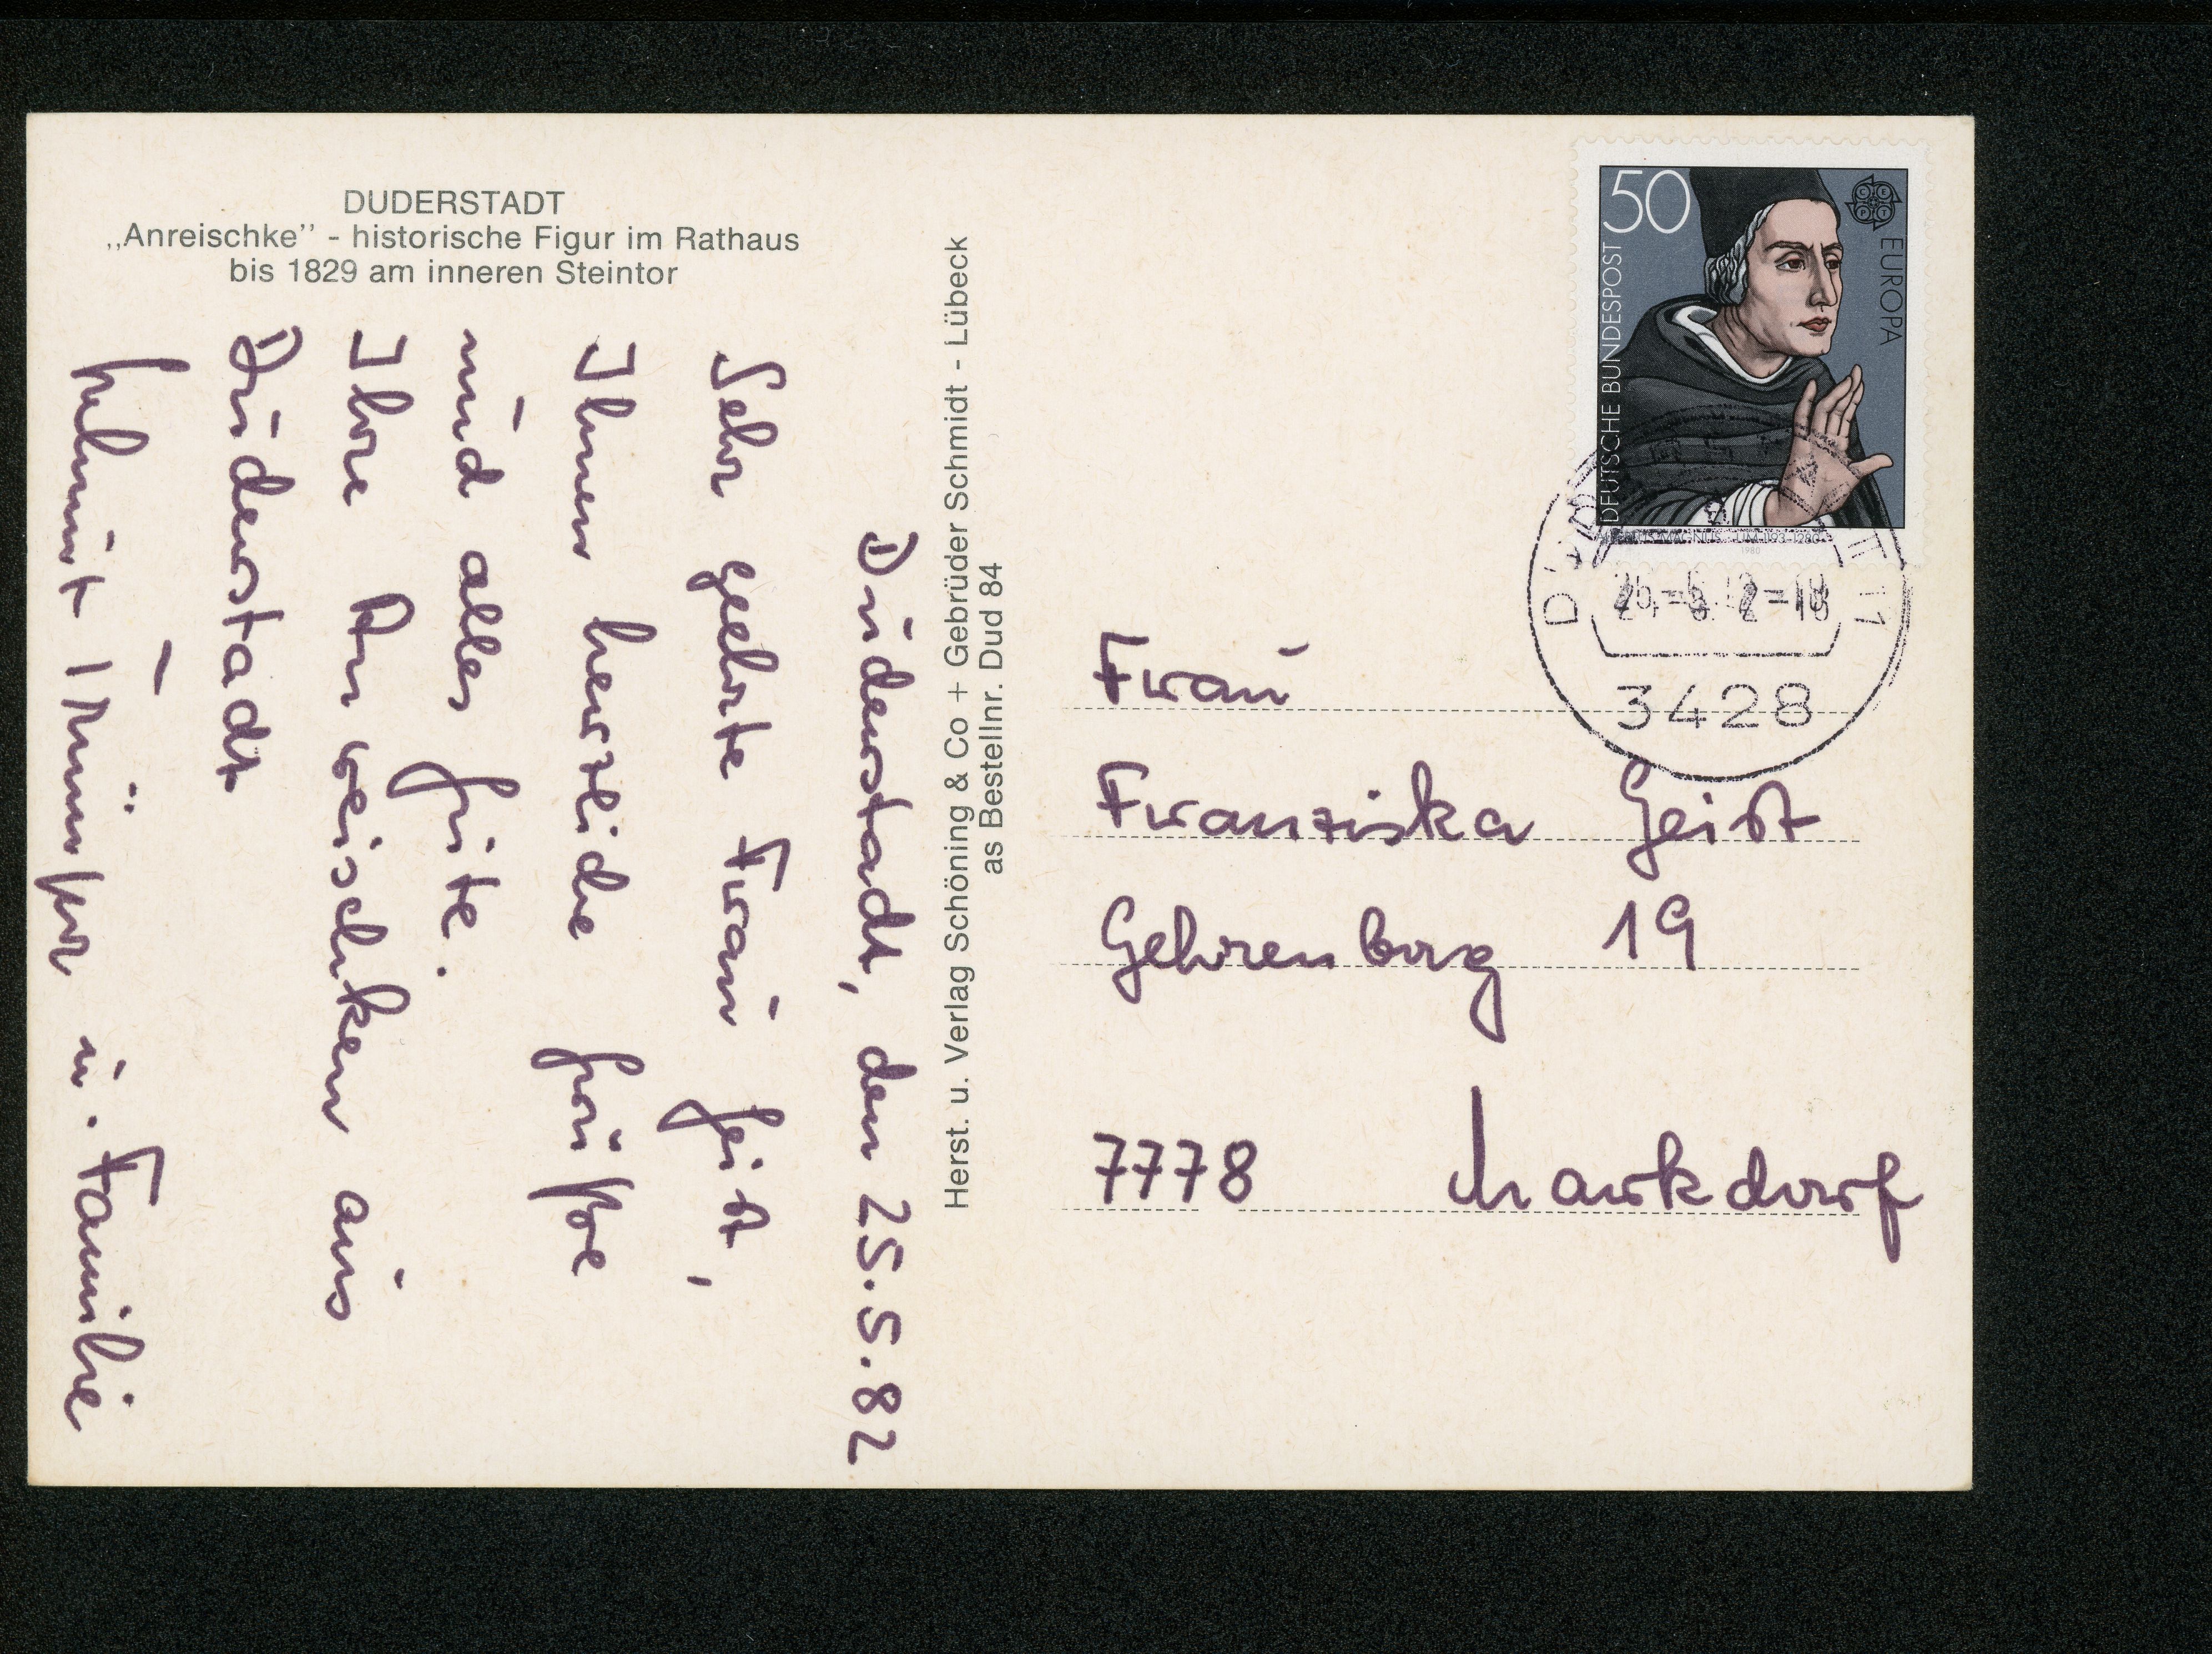 DUDERSTADT
„Anreischke” - historische Figur im Rathaus
bis 1829 am inneren Steintor
Duderstadt, den 25.5.82
Sehr geehrte Frau Geist,
Ihnen herzliche Grüße
und alles Gute.
Ihre Anreischken aus
Duderstadt
Helmut u. Familie
Herst. u. Verlag Schöning & Co + Gebrüder Schmidt - Lübeck
as Bestellnr. Dud 84
50
EUROPA
DEUTSCHE BUNDESPOST
ALBERTUS MAGNUS UM 1193-1280
1980
3428
Frau
Franziska Geist
Gehrenberg 19
7778 Markdorf